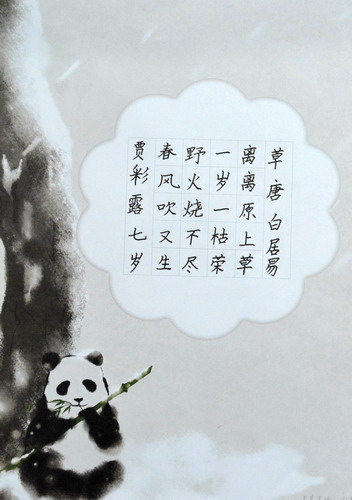 草·唐 白居易
离离原上草
一岁一枯荣
野火烧不尽
春风吹又生
贾彩露七岁